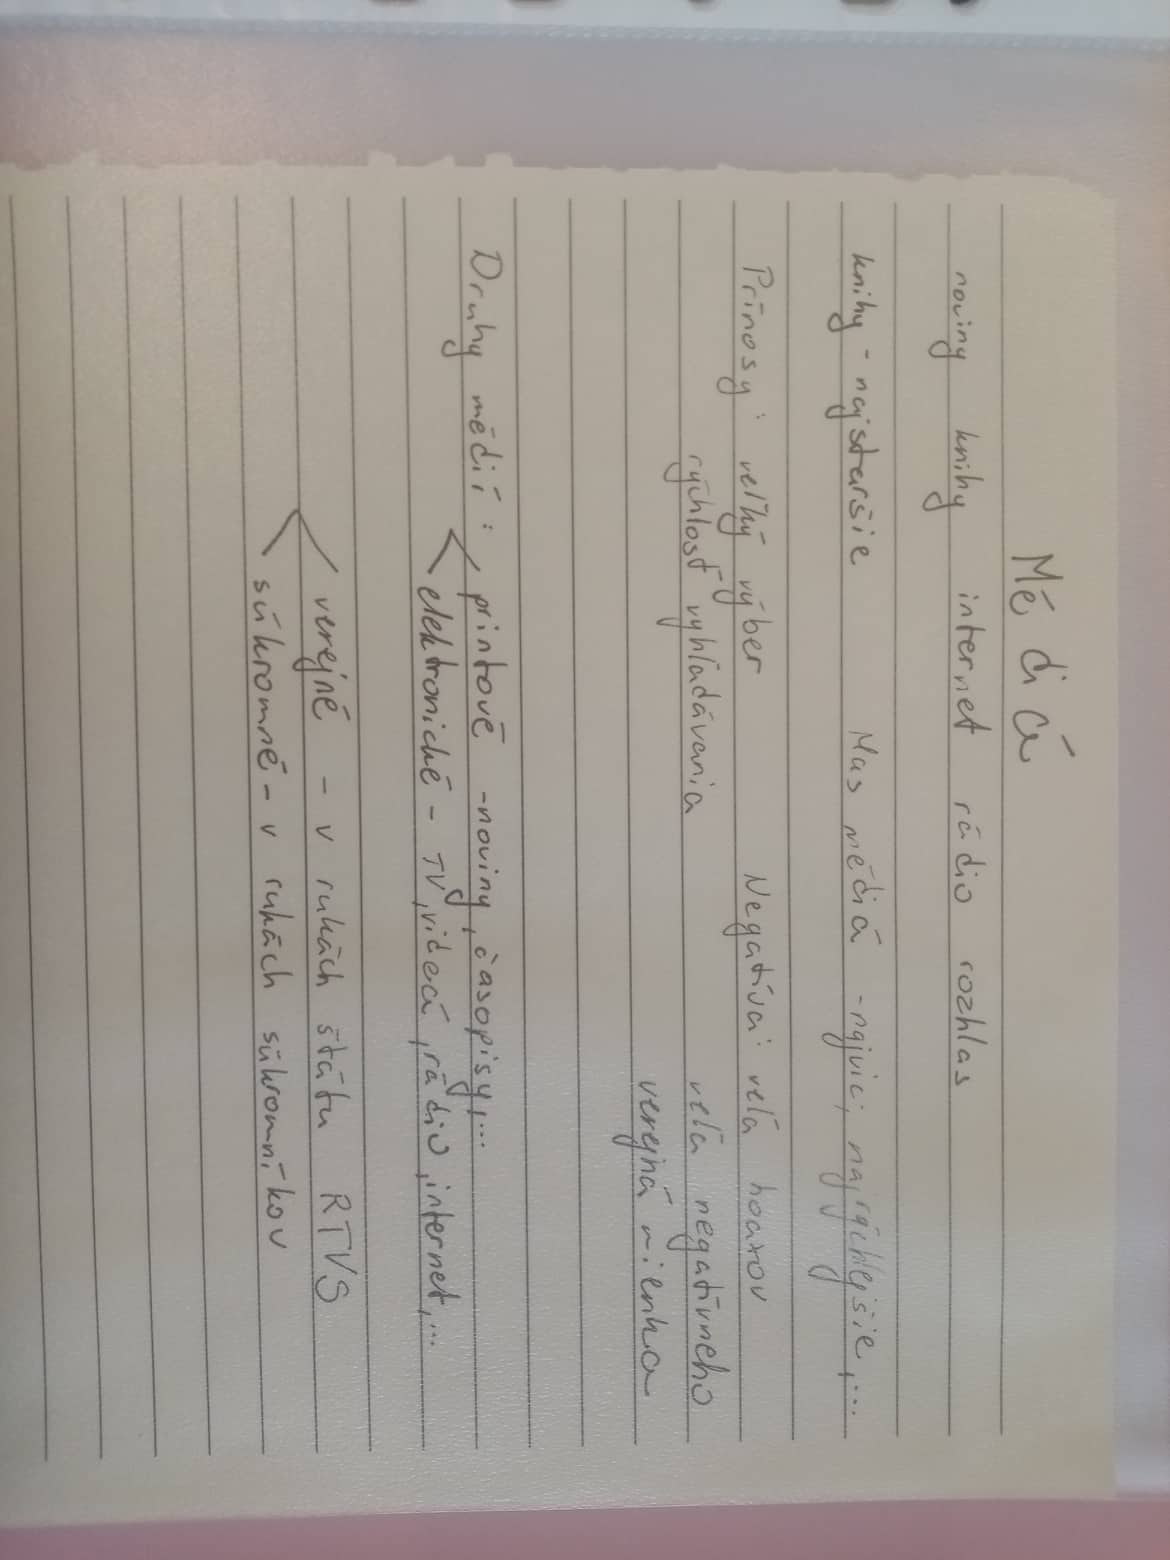 Médiá
noviny knihy internet rádio rozhlas
knihy - najstaršie Mas médiá - najvic, najrýchlejšie,...
Prínosy: veľký výber Negatíva: veľa hoaxov
rýchlosť vyhľadávania veľa negatívneho
verejná mienka
Druhy médií: printové - noviny, časopisy,...
elektronické - TV, videá, rádio, internet,...
verejné - v rukách štátu RTVS
súkromné - v rukách súkromníkov